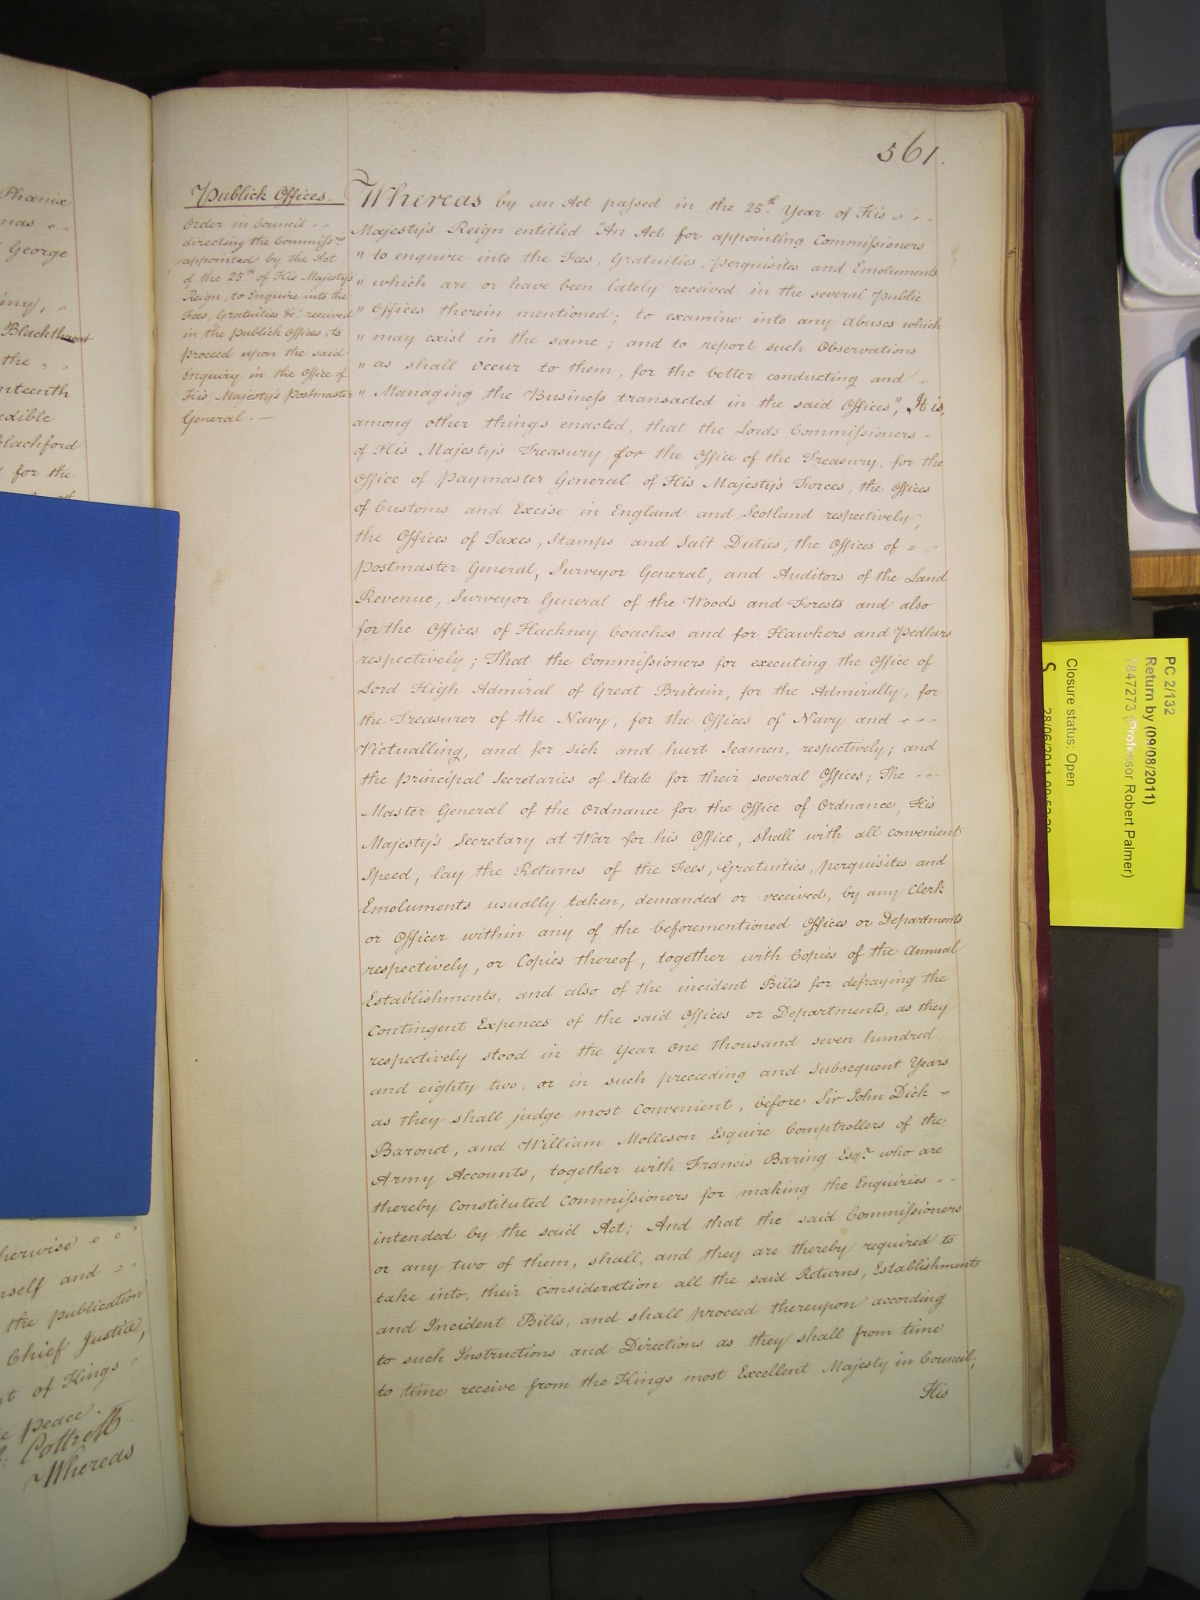 Phœnix
George
Blackthroat
the
nteenth
edible
Blachford
for the
herwise
nself and
the publication
Chief Justice,
at of Kings
Peace.
Cottrell
Whereas
561.
Publick Offices.
Order in Council
directing the Commissrs
appointed by the Act
of the 25th of His Majestys
Reign, to Enquire into the
Fees, Gratuities &c. received
in the Publick Offices, to
proceed upon the said
Enquiry in the Office of
His Majesty's Postmaster
General.
Whereas by an Act passed in the 25th. Year of His
Majesty's Reign entitled "An Act for appointing Commissioners
" to enquire into the Fees, Gratuities, Perquisites and Emoluments
" which are or have been lately received in the several Public
" Offices therein mentioned; to examine into any abuses which
" may exist in the same; and to report such Observations
" as shall occur to them, for the better conducting and
" Managing the Business transacted in the said Offices", It is,
among other things enacted, that the Lords Commissioners
of His Majesty's Treasury, for the Office of the Treasury, for the
Office of Paymaster General of His Majesty's Forces, the Offices
of Customs and Excise in England and Scotland respectively,
the Offices of Taxes, Stamps and Salt Duties, the Offices of
Postmaster General, Surveyor General, and Auditors of the Land
Revenue, Surveyor General of the Woods and Forests and also
for the Offices of Hackney Coaches and for Hawkers and Pedlars
respectively; That the Commissioners for executing the Office of
Lord High Admiral of Great Britain, for the Admiralty, for
the Treasurer of the Navy, for the Offices of Navy and
Victualling, and for Sick and hurt Seamen, respectively; and
the Principal Secretaries of State for their several Offices; The
Master General of the Ordnance for the Office of Ordnance, His
Majesty's Secretary at War for his Office, shall with all convenient
Speed, lay the Returns of the Fees, Gratuities, perquisites and
Emoluments usually taken, demanded or received, by any Clerk
or Officer within any of the beforementioned Offices or Departments
respectively, or Copies thereof, together with Copies of the Annual
Establishments, and also of the incident Bills for defraying the
Contingent Expences of the said Offices or Departments, as they
respectively stood in the Year One thousand seven hundred
and eighty two, or in such preceeding and subsequent Years
as they shall judge most convenient, before Sir John Dick
Baronet, and William Molleson Esquire Comptrollers of the
Army Accounts, together with Francis Baring Esqr. who are
thereby Constituted Commissioners for making the Enquiries
intended by the said Act; And that the said Commissioners
or any two of them, shall, and they are thereby required to
take into their consideration all the said Returns, Establishments
and Incident Bills, and shall proceed thereupon according
to such Instructions and Directions as they shall from time
to time receive from the Kings most Excellent Majesty in Council;
His
PC 2/132
Return by (09/08/2011)
7847273 (Professor Robert Palmer)
Closure status: Open
S